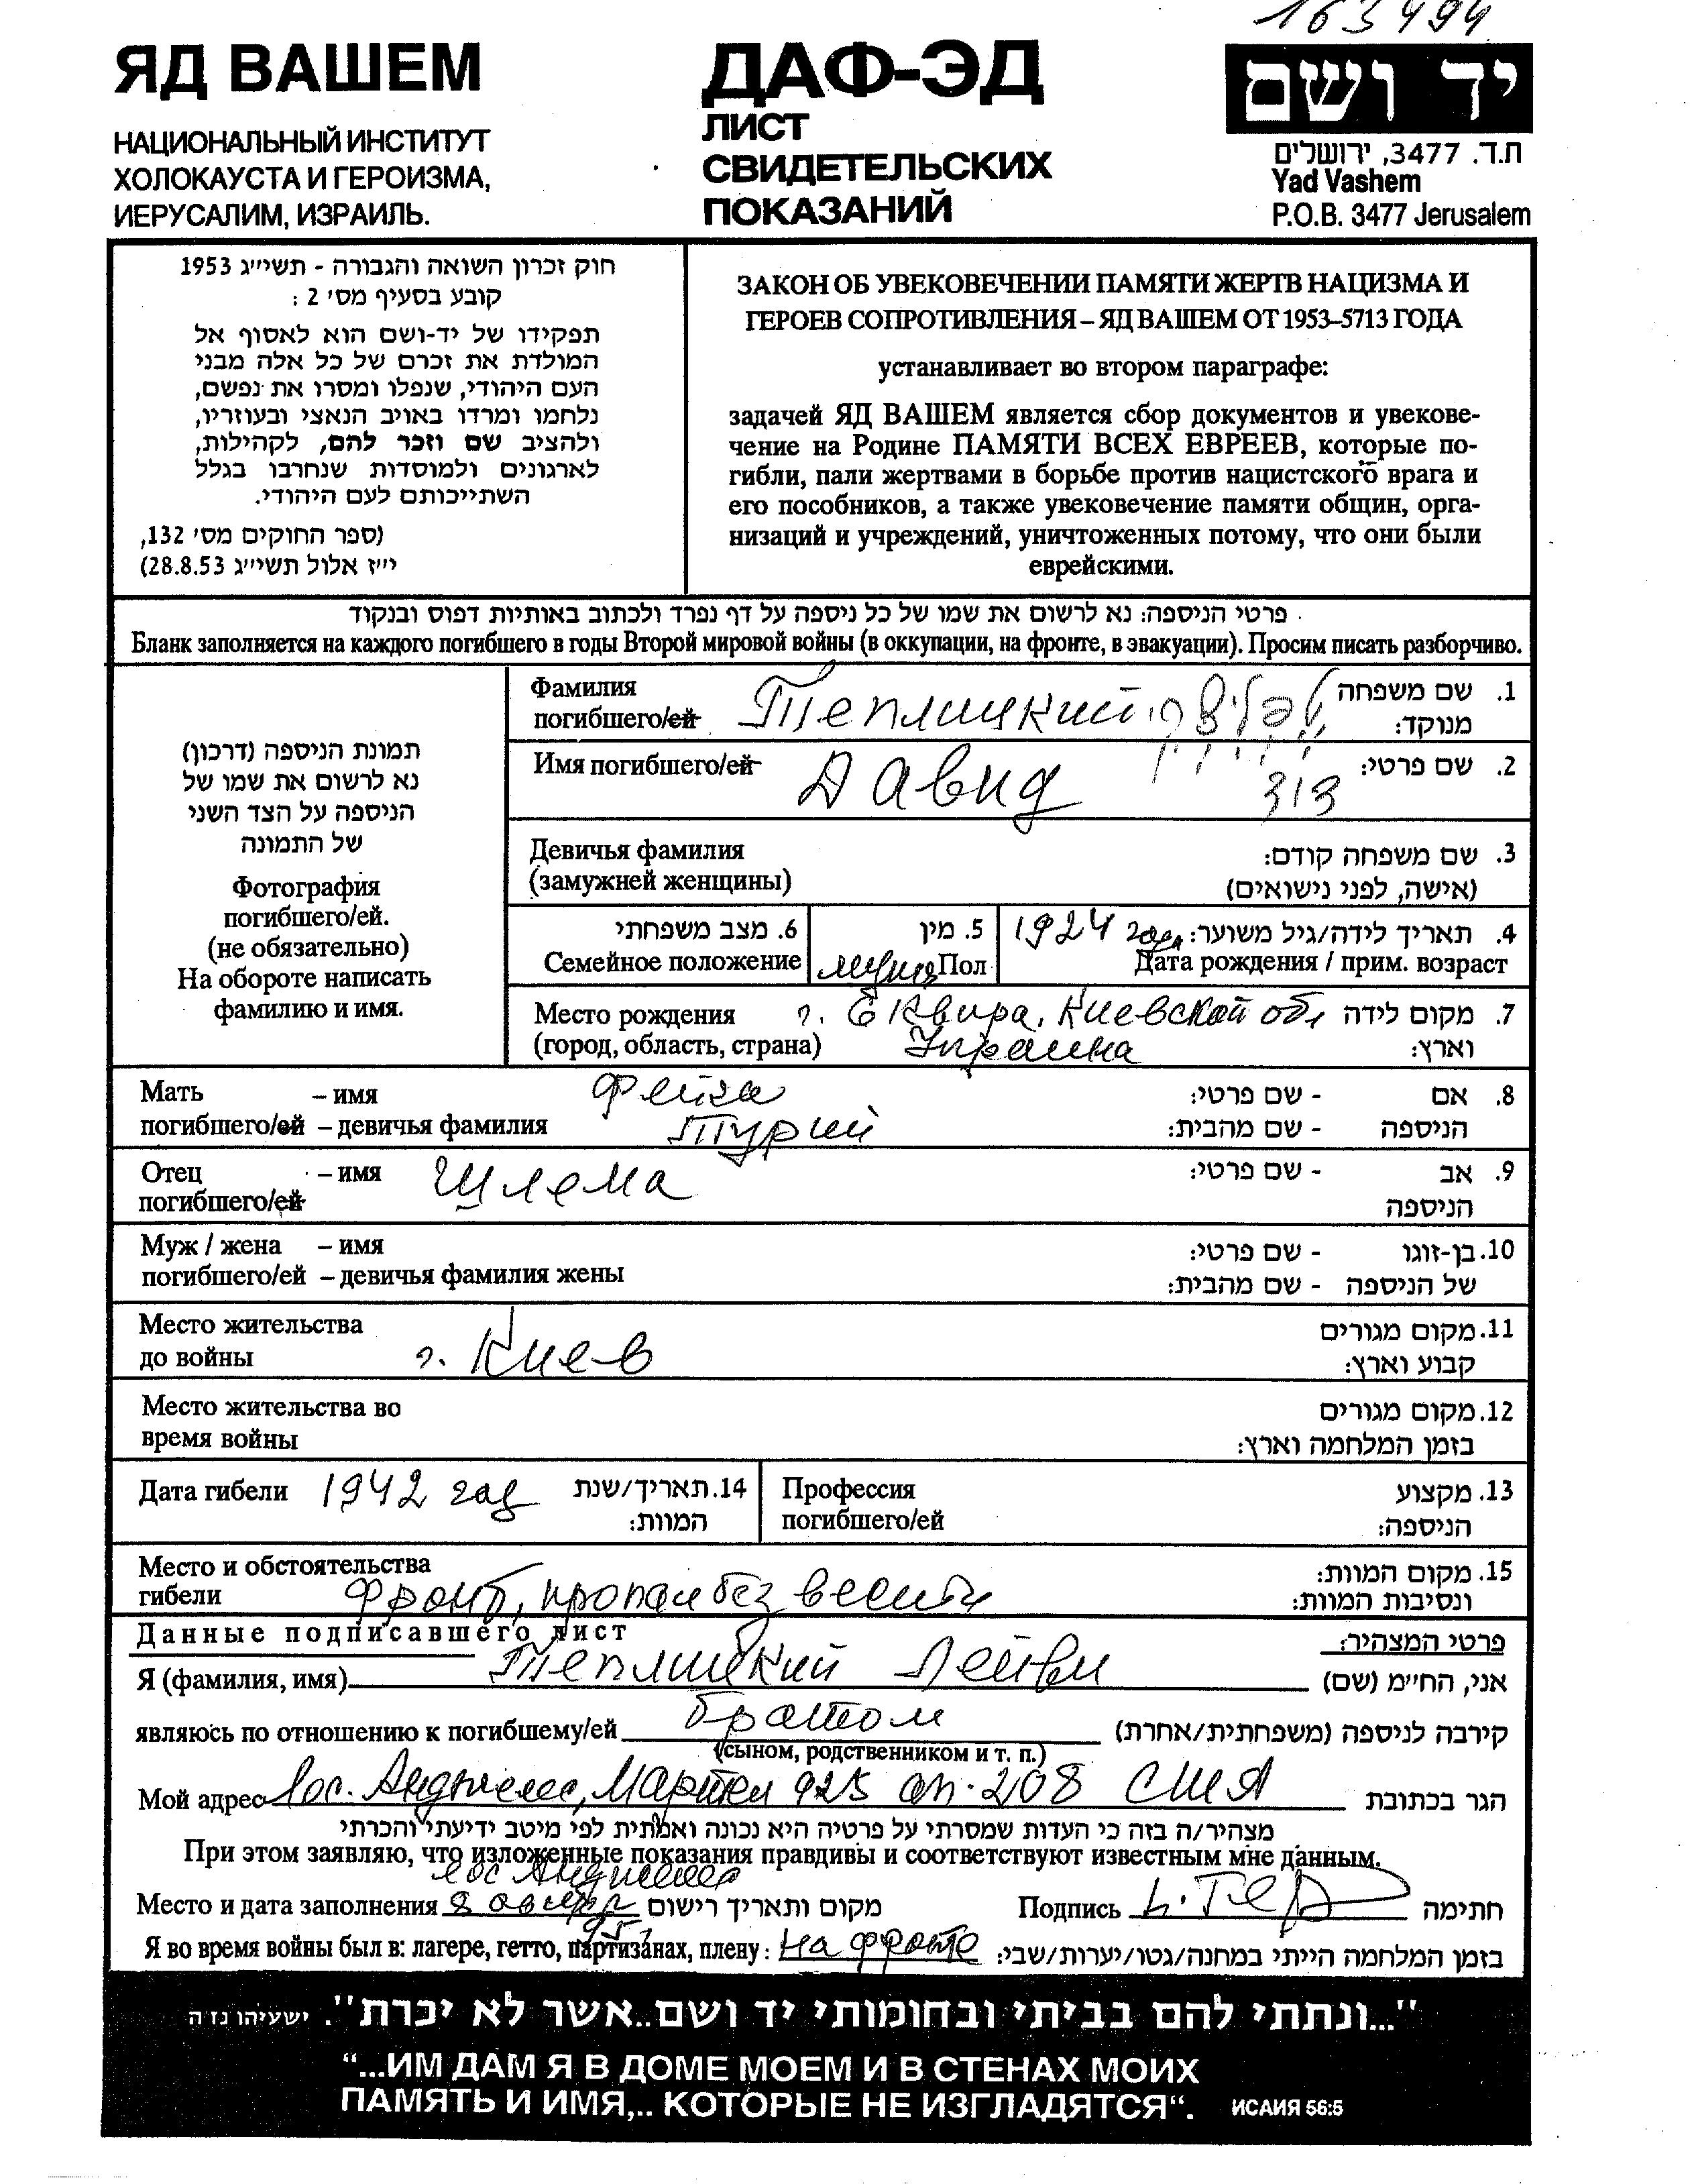 163494
ЯД ВАШЕМ
НАЦИОНАЛЬНЫЙ ИНСТИТУТ
ХОЛОКАУСТА И ГЕРОИЗМА,
ИЕРУСАЛИМ, ИЗРАИЛЬ.
ДАФ-ЭД
ЛИСТ
СВИДЕТЕЛЬСКИХ
ПОКАЗАНИЙ
יד ושם
ת.ד. 3477, ירושלים
Yad Vashem
P.O.B. 3477 Jerusalem
חוק זכרון השואה והגבורה - תשי״ג 1953
קובע בסעיף מס׳ 2 :
תפקידו של יד-ושם הוא לאסוף אל
המולדת את זכרם של כל אלה מבני
העם היהודי, שנפלו ומסרו את נפשם,
נלחמו ומרדו באויב הנאצי ובעוזריו,
ולהציב שם וזכר להם, לקהילות,
לארגונים ולמוסדות שנחרבו בגלל
השתייכותם לעם היהודי.
(ספר החוקים מס׳ 132,
י״ז אלול תשי״ג 28.8.53)
ЗАКОН ОБ УВЕКОВЕЧЕНИИ ПАМЯТИ ЖЕРТВ НАЦИЗМА И
ГЕРОЕВ СОПРОТИВЛЕНИЯ – ЯД ВАШЕМ ОТ 1953–5713 ГОДА
устанавливает во втором параграфе:
задачей ЯД ВАШЕМ является сбор документов и увекове-
чение на Родине ПАМЯТИ ВСЕХ ЕВРЕЕВ, которые по-
гибли, пали жертвами в борьбе против нацистского врага и
его пособников, а также увековечение памяти общин, орга-
низаций и учреждений, уничтоженных потому, что они были
еврейскими.
פרטי הניספה: נא לרשום את שמו של כל ניספה על דף נפרד ולכתוב באותיות דפוס ובנקוד
Бланк заполняется на каждого погибшего в годы Второй мировой войны (в оккупации, на фронте, в эвакуации). Просим писать разборчиво.
תמונת הניספה (דרכון)
נא לרשום את שמו של
הניספה על הצד השני
של התמונה
Фотография
погибшего/ей.
(не обязательно)
На обороте написать
фамилию и имя.
Фамилия
погибшего/ей Теплицкий 1. שם משפחה
מנוקד:
Имя погибшего/ей Давид דוד 2. שם פרטי:
Девичья фамилия 3. שם משפחה קודם:
(замужней женщины) (אישה, לפני נישואים)
6. מצב משפחתי 5. מין 1924 года 4. תאריך לידה/גיל משוער:
Семейное положение Пол Дата рождения / прим. возраст
Место рождения г. Сквира, Киевской обл 7. מקום לידה
(город, область, страна) Украина וארץ:
Мать – имя Фейга 8. אם - שם פרטי:
погибшего/ей – девичья фамилия Турий הניספה - שם מהבית:
Отец – имя Шлема 9. אב - שם פרטי:
погибшего/ей הניספה
Муж / жена – имя 10. בן-זוגו - שם פרטי:
погибшего/ей – девичья фамилия жены של הניספה - שם מהבית:
Место жительства 11. מקום מגורים
до войны г. Киев קבוע וארץ:
Место жительства во 12. מקום מגורים
время войны בזמן המלחמה וארץ:
Дата гибели 1942 год 14. תאריך/שנת
המוות:
Профессия 13. מקצוע
погибшего/ей הניספה:
Место и обстоятельства 15. מקום המוות:
гибели Фронт, пропал без вести ונסיבות המוות:
Данные подписавшего лист פרטי המצהיר:
Я (фамилия, имя) Теплицкий Лейви אני, החיימ (שם)
являюсь по отношению к погибшему/ей братом קירבה לניספה (משפחתית/אחרת)
(сыном, родственником и т. п.)
Мой адрес Лос. Анджелес, Мартел 925 ап. 208 США הגר בכתובת
מצהיר/ה בזה כי העדות שמסרתי על פרטיה היא נכונה ואמתית לפי מיטב ידיעתי והכרתי
При этом заявляю, что изложенные показания правдивы и соответствуют известным мне данным.
Лос Анджелес
Место и дата заполнения 8 מקום ותאריך רישום Подпись חתימה
Я во время войны был в: лагере, гетто, партизанах, плену: На фронте בזמן המלחמה הייתי במחנה/גטו/יערות/שבי:
"...ונתתי להם בביתי ובחומותי יד ושם..אשר לא יכרת". ישעיהו נז ה
“...ИМ ДАМ Я В ДОМЕ МОЕМ И В СТЕНАХ МОИХ
ПАМЯТЬ И ИМЯ,.. КОТОРЫЕ НЕ ИЗГЛАДЯТСЯ“. ИСАИЯ 56:5